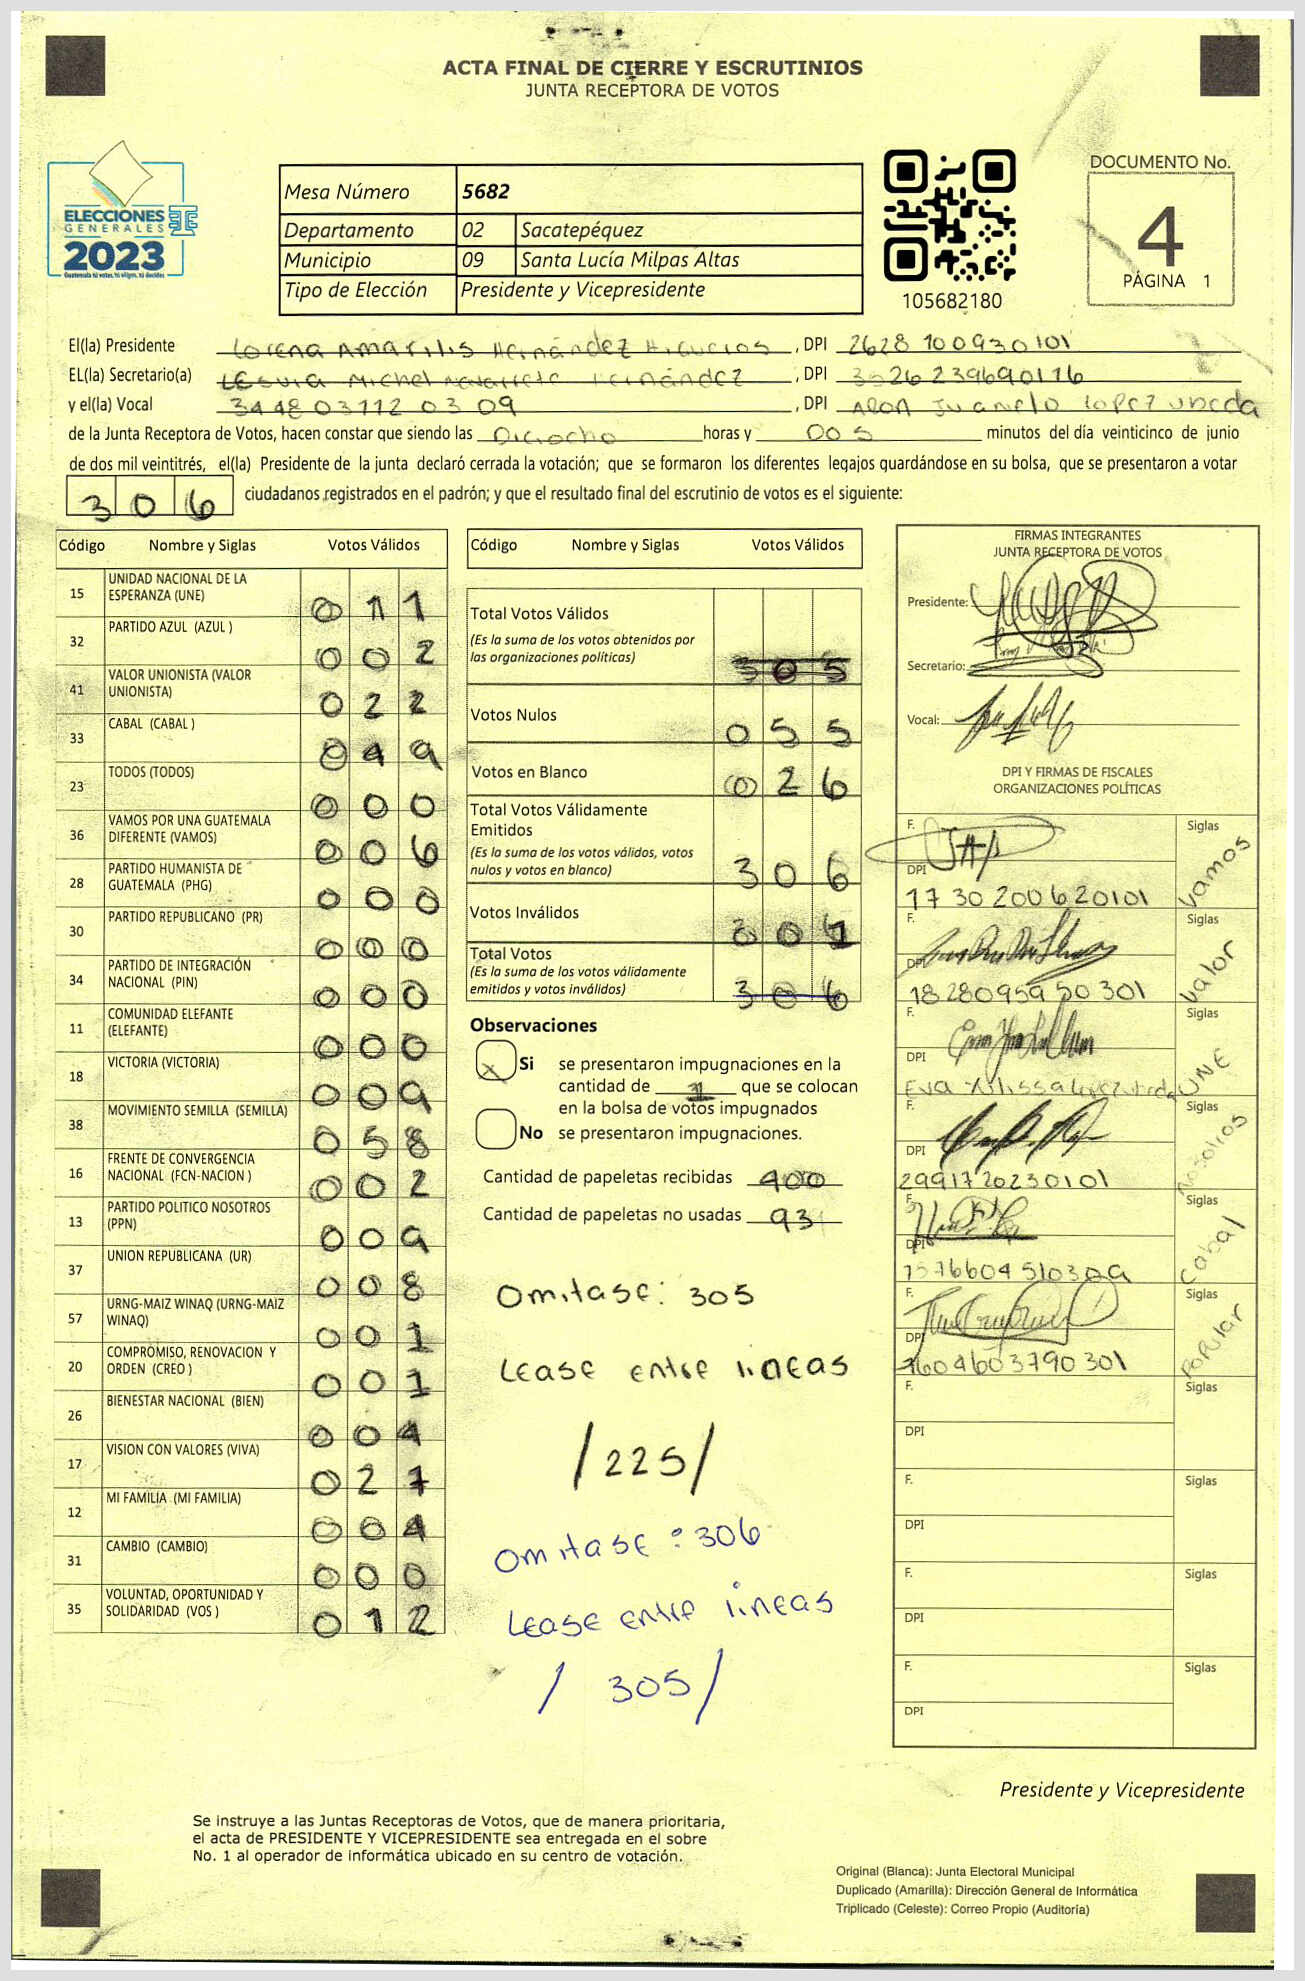 ACTA FINAL DE CIERRE Y ESCRUTINIOS
JUNTA RECEPTORA DE VOTOS
ELECCIONES
GENERALES
2023
Guatemala tú votas, tú eliges, tú decides
Mesa Número 5682
Departamento 02 Sacatepéquez
Municipio 09 Santa Lucía Milpas Altas
Tipo de Elección Presidente y Vicepresidente
105682180
DOCUMENTO No.
4
PÁGINA 1
El(la) Presidente Lorena Amarilis Hernández Higueros, DPI 2628 100930101
EL(la) Secretario(a) Lesvia Michel Navarrete Hernández, DPI 3526239690116
y el(la) Vocal 3448 03112 0309, DPI Aron Juanelo Lopez Ubeda
de la Junta Receptora de Votos, hacen constar que siendo las Dieciocho horas y 00 5 minutos del día veinticinco de junio
de dos mil veintitrés, el(la) Presidente de la junta declaró cerrada la votación; que se formaron los diferentes legajos guardándose en su bolsa, que se presentaron a votar
306 ciudadanos registrados en el padrón; y que el resultado final del escrutinio de votos es el siguiente:
Código Nombre y Siglas Votos Válidos
15 UNIDAD NACIONAL DE LA ESPERANZA (UNE) 011
32 PARTIDO AZUL (AZUL ) 002
41 VALOR UNIONISTA (VALOR UNIONISTA) 022
33 CABAL (CABAL ) 049
23 TODOS (TODOS) 000
36 VAMOS POR UNA GUATEMALA DIFERENTE (VAMOS) 006
28 PARTIDO HUMANISTA DE GUATEMALA (PHG) 000
30 PARTIDO REPUBLICANO (PR) 000
34 PARTIDO DE INTEGRACIÓN NACIONAL (PIN) 000
11 COMUNIDAD ELEFANTE (ELEFANTE) 000
18 VICTORIA (VICTORIA) 009
38 MOVIMIENTO SEMILLA (SEMILLA) 058
16 FRENTE DE CONVERGENCIA NACIONAL (FCN-NACION ) 002
13 PARTIDO POLITICO NOSOTROS (PPN) 009
37 UNION REPUBLICANA (UR) 008
57 URNG-MAIZ WINAQ (URNG-MAIZ WINAQ) 001
20 COMPROMISO, RENOVACION Y ORDEN (CREO ) 001
26 BIENESTAR NACIONAL (BIEN) 004
17 VISION CON VALORES (VIVA) 027
12 MI FAMILIA (MI FAMILIA) 004
31 CAMBIO (CAMBIO) 000
35 VOLUNTAD, OPORTUNIDAD Y SOLIDARIDAD (VOS ) 012
Código Nombre y Siglas Votos Válidos
Total Votos Válidos
(Es la suma de los votos obtenidos por las organizaciones políticas) 305
Votos Nulos 055
Votos en Blanco 026
Total Votos Válidamente Emitidos
(Es la suma de los votos válidos, votos nulos y votos en blanco) 306
Votos Inválidos
Total Votos
(Es la suma de los votos válidamente emitidos y votos inválidos) 306
Observaciones
X Si se presentaron impugnaciones en la
cantidad de 1 que se colocan
en la bolsa de votos impugnados
No se presentaron impugnaciones.
Cantidad de papeletas recibidas 400
Cantidad de papeletas no usadas 93
Omitase: 305
Lease entre lineas
/225/
Omitase: 306
Lease entre lineas
/305/
FIRMAS INTEGRANTES
JUNTA RECEPTORA DE VOTOS
Presidente:
Secretario:
Vocal:
DPI Y FIRMAS DE FISCALES
ORGANIZACIONES POLÍTICAS
F. Siglas Vamos
DPI 1730200620101
F. Siglas Valor
DPI 1828095950301
F. Siglas UNE
DPI Eva
F. Siglas Nosotros
DPI 2991720230101
F. Siglas Cabal
DPI
F. Siglas Popular
DPI 1604603790301
F. Siglas
DPI
F. Siglas
DPI
F. Siglas
DPI
F. Siglas
DPI
Presidente y Vicepresidente
Se instruye a las Juntas Receptoras de Votos, que de manera prioritaria,
el acta de PRESIDENTE Y VICEPRESIDENTE sea entregada en el sobre
No. 1 al operador de informática ubicado en su centro de votación.
Original (Blanca): Junta Electoral Municipal
Duplicado (Amarilla): Dirección General de Informática
Triplicado (Celeste): Correo Propio (Auditoría)